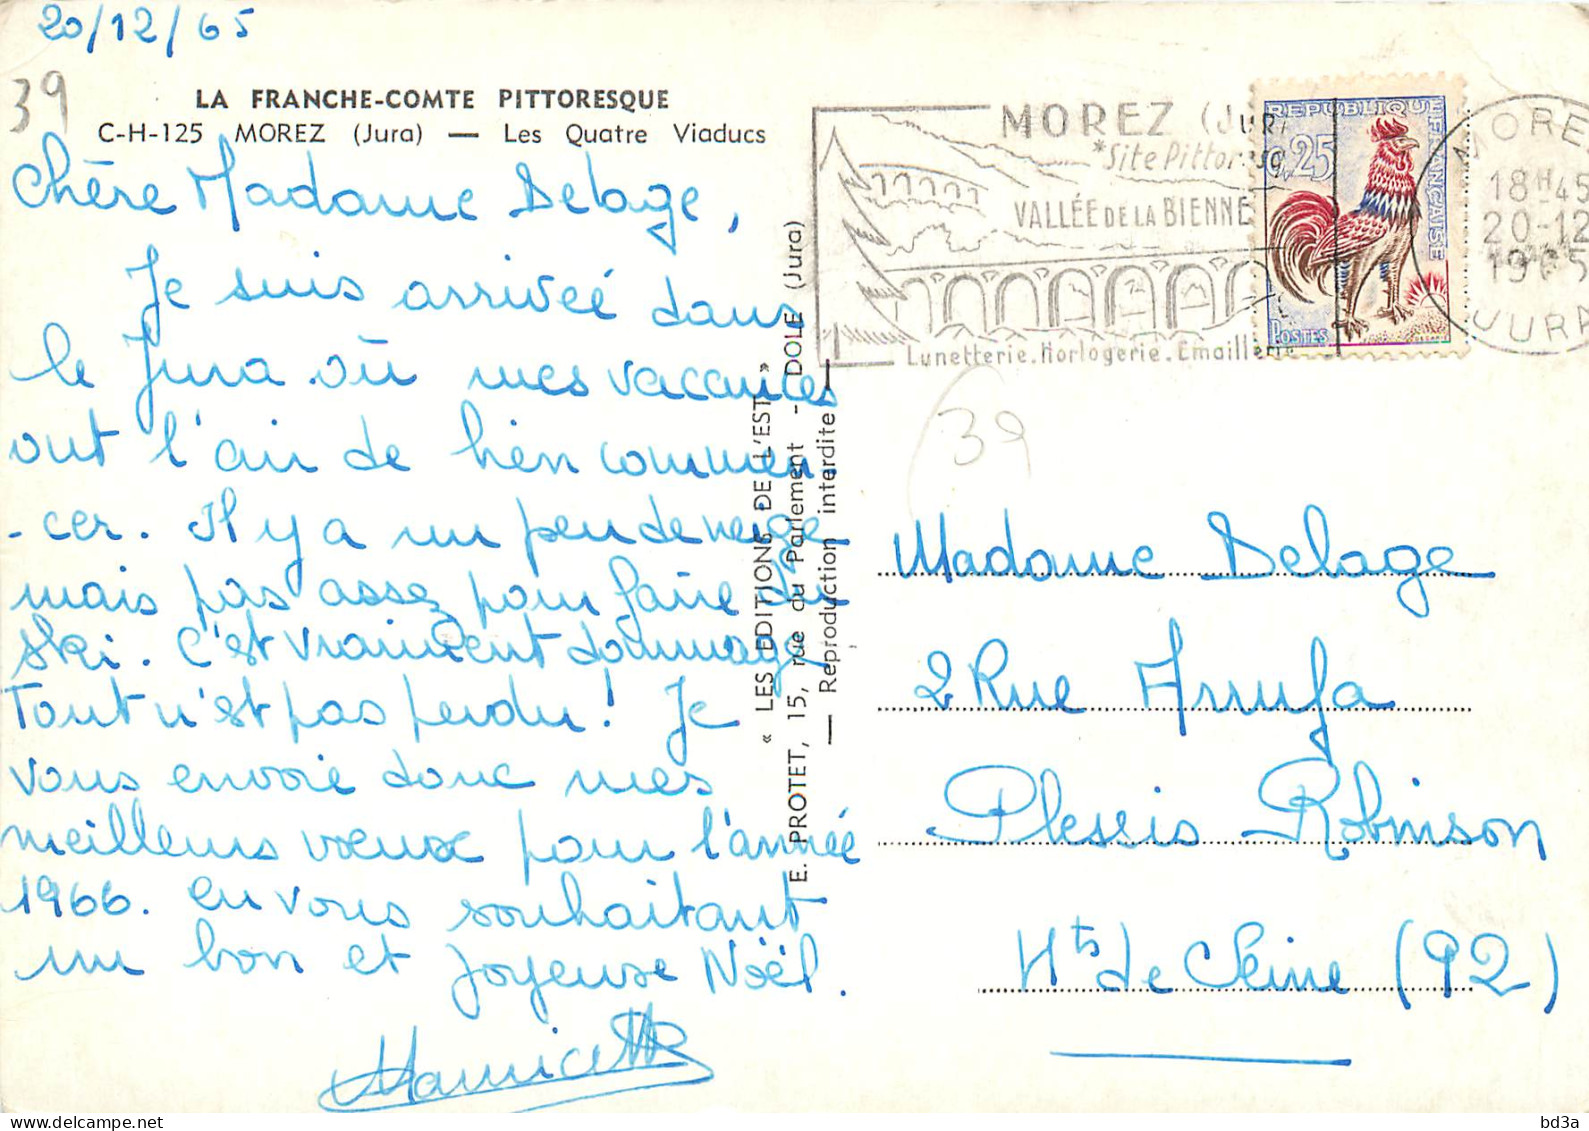 20/12/65
39
LA FRANCHE-COMTE PITTORESQUE
C-H-125 MOREZ (Jura) — Les Quatre Viaducs
Chère Madame Delage,
Je suis arrivée dans
le Jura où mes vacances
ont l'air de bien commen-
-cer. Il y a un peu de neige
mais pas assez pour faire du
ski. C'est vraiment dommage
Tout n'est pas perdu ! Je
vous envoie donc mes
meilleurs vœux pour l'année
1966. en vous souhaitant
un bon et joyeuse Noël.
« LES EDITIONS DE L'EST »
E. PROTET, 15, rue du Parlement - DOLE (Jura)
— Reproduction interdite —
MOREZ (JUR
*Site Pittoresq
VALLÉE DE LA BIENNE
Lunetterie.Horlogerie.Emaillerie
REPUBLIQUE FRANÇAISE
0,25
POSTES
MOREZ
18H45
20-12
1965
JURA
39
Madame Delage
2 Rue Arrufa
Plessis Robinson
Hts de Seine (92)
bd3a